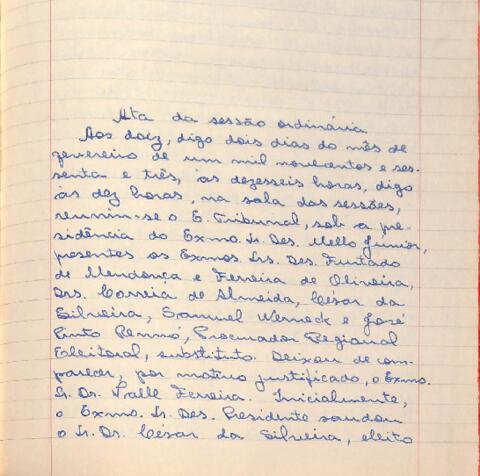 Ata da sessão ordinária
Aos doez, digo dois dias do mês de
fevereiro de um mil novecentos e ses-
senta e três, às dezesseis horas, digo
às dez horas, na sala das sessões,
reuniu-se o E. Tribunal, sob a pre-
sidência do Exmo. Sr. Des. Mello Júnior,
presentes os Exmos. Srs. Des. Furtado
de Mendonça e Ferreira de Oliveira,
Drs. Correia de Almeida, César da
Silveira, Samuel Werneck e José
Pinto Rennó, Procurador Regional
Eleitoral, substituto. Deixou de com-
parecer, por motivo justificado, o Exmo.
Sr. Dr. Valle Ferreira. Inicialmente,
o Exmo. Sr. Des. Presidente saudou
o Sr. Dr. César da Silveira, eleito